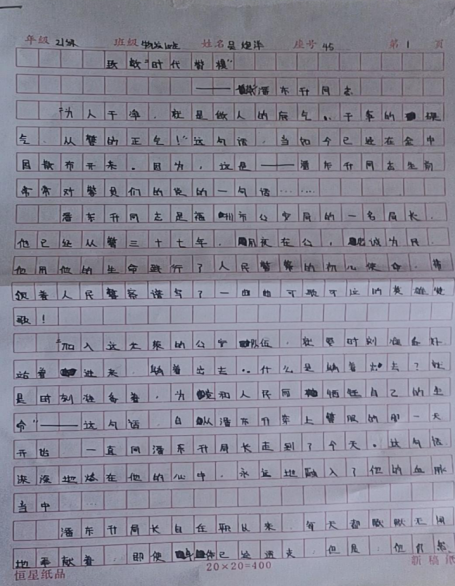 年级 21级 班级 姓名 吴 座号 45 第 1 页
致敬"时代楷模"
———潘东升同志
"为人干净，就是做人的底气，干事的硬
气，从警的正气！"这句话，当如今已经在全中
国散布开来。因为，这是———潘东升同志生前
常常对警员们的说的一句话……
潘东升同志是福州市公安局的一名局长，
他已经从警三十七年，在公，诚为民，
他用他的生命践行了人民警察的初心使命，带
领着人民警察谱写了一曲曲可歌可泣的英雄赞
歌！
"加入这支队的公安队伍，就要时刻准备
站着进来，躺着出去。什么是躺着出去？就
是时刻准备着，为党和人民牺牲自己的生
命"———这句话，自从潘东升穿上警服的那一天
开始，一直同潘东升局长走到了今天。这句话
深深地烙在他的心中，永远地融入了他的血脉
当中
潘东升局长自在职以来，每天都默默无闻
地奉献着，即使已经逝去，但是，他们
恒星纸品 20×20=400